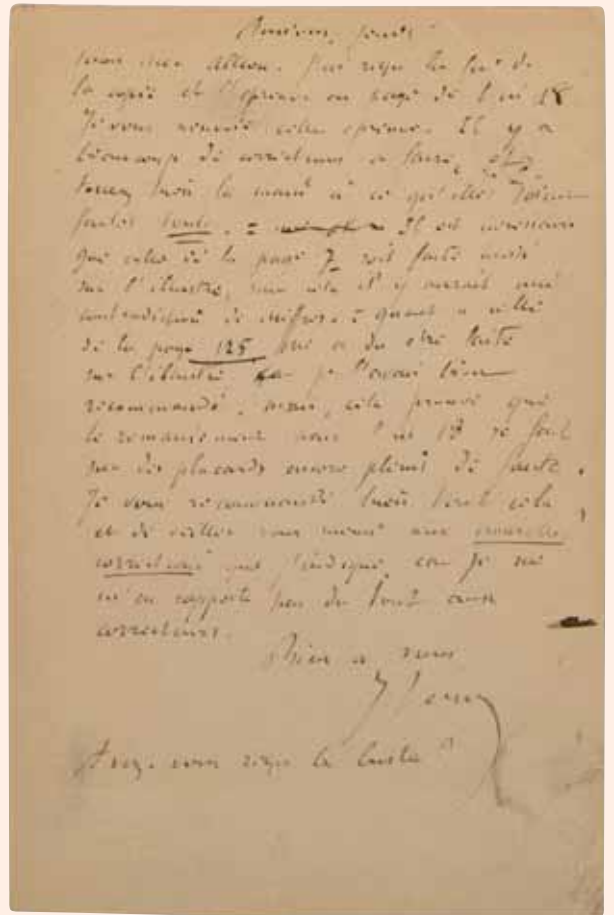 Amiens, jeudi
mon cher ami. J'ai reçu la fin de
la copie et l'épreuve en page de l'in 18
Je vous renvoie cette épreuve. Il y a
beaucoup de corrections à faire, et
tenez bien la main à ce qu'elles soient
faites toutes. = Il est nécessaire
que celle de la page 7 soit faite aussi
sur l'illustré, sans cela il y aurait une
contradiction de chiffres. = quant à celle
de la page 125, qui a dû être faite
sur l'illustré je l'avais bien
recommandé, mais, cela prouve que
le remaniement pour l'in 18 se fait
sur des placards encore pleins de fautes.
Je vous recommande bien tout cela
et de veiller vous même aux nouvelles
corrections que j'indique, car je ne
m'en rapporte pas du tout aux
correcteurs.
Bien à vous
J Verne
Avez-vous reçu la suite ?